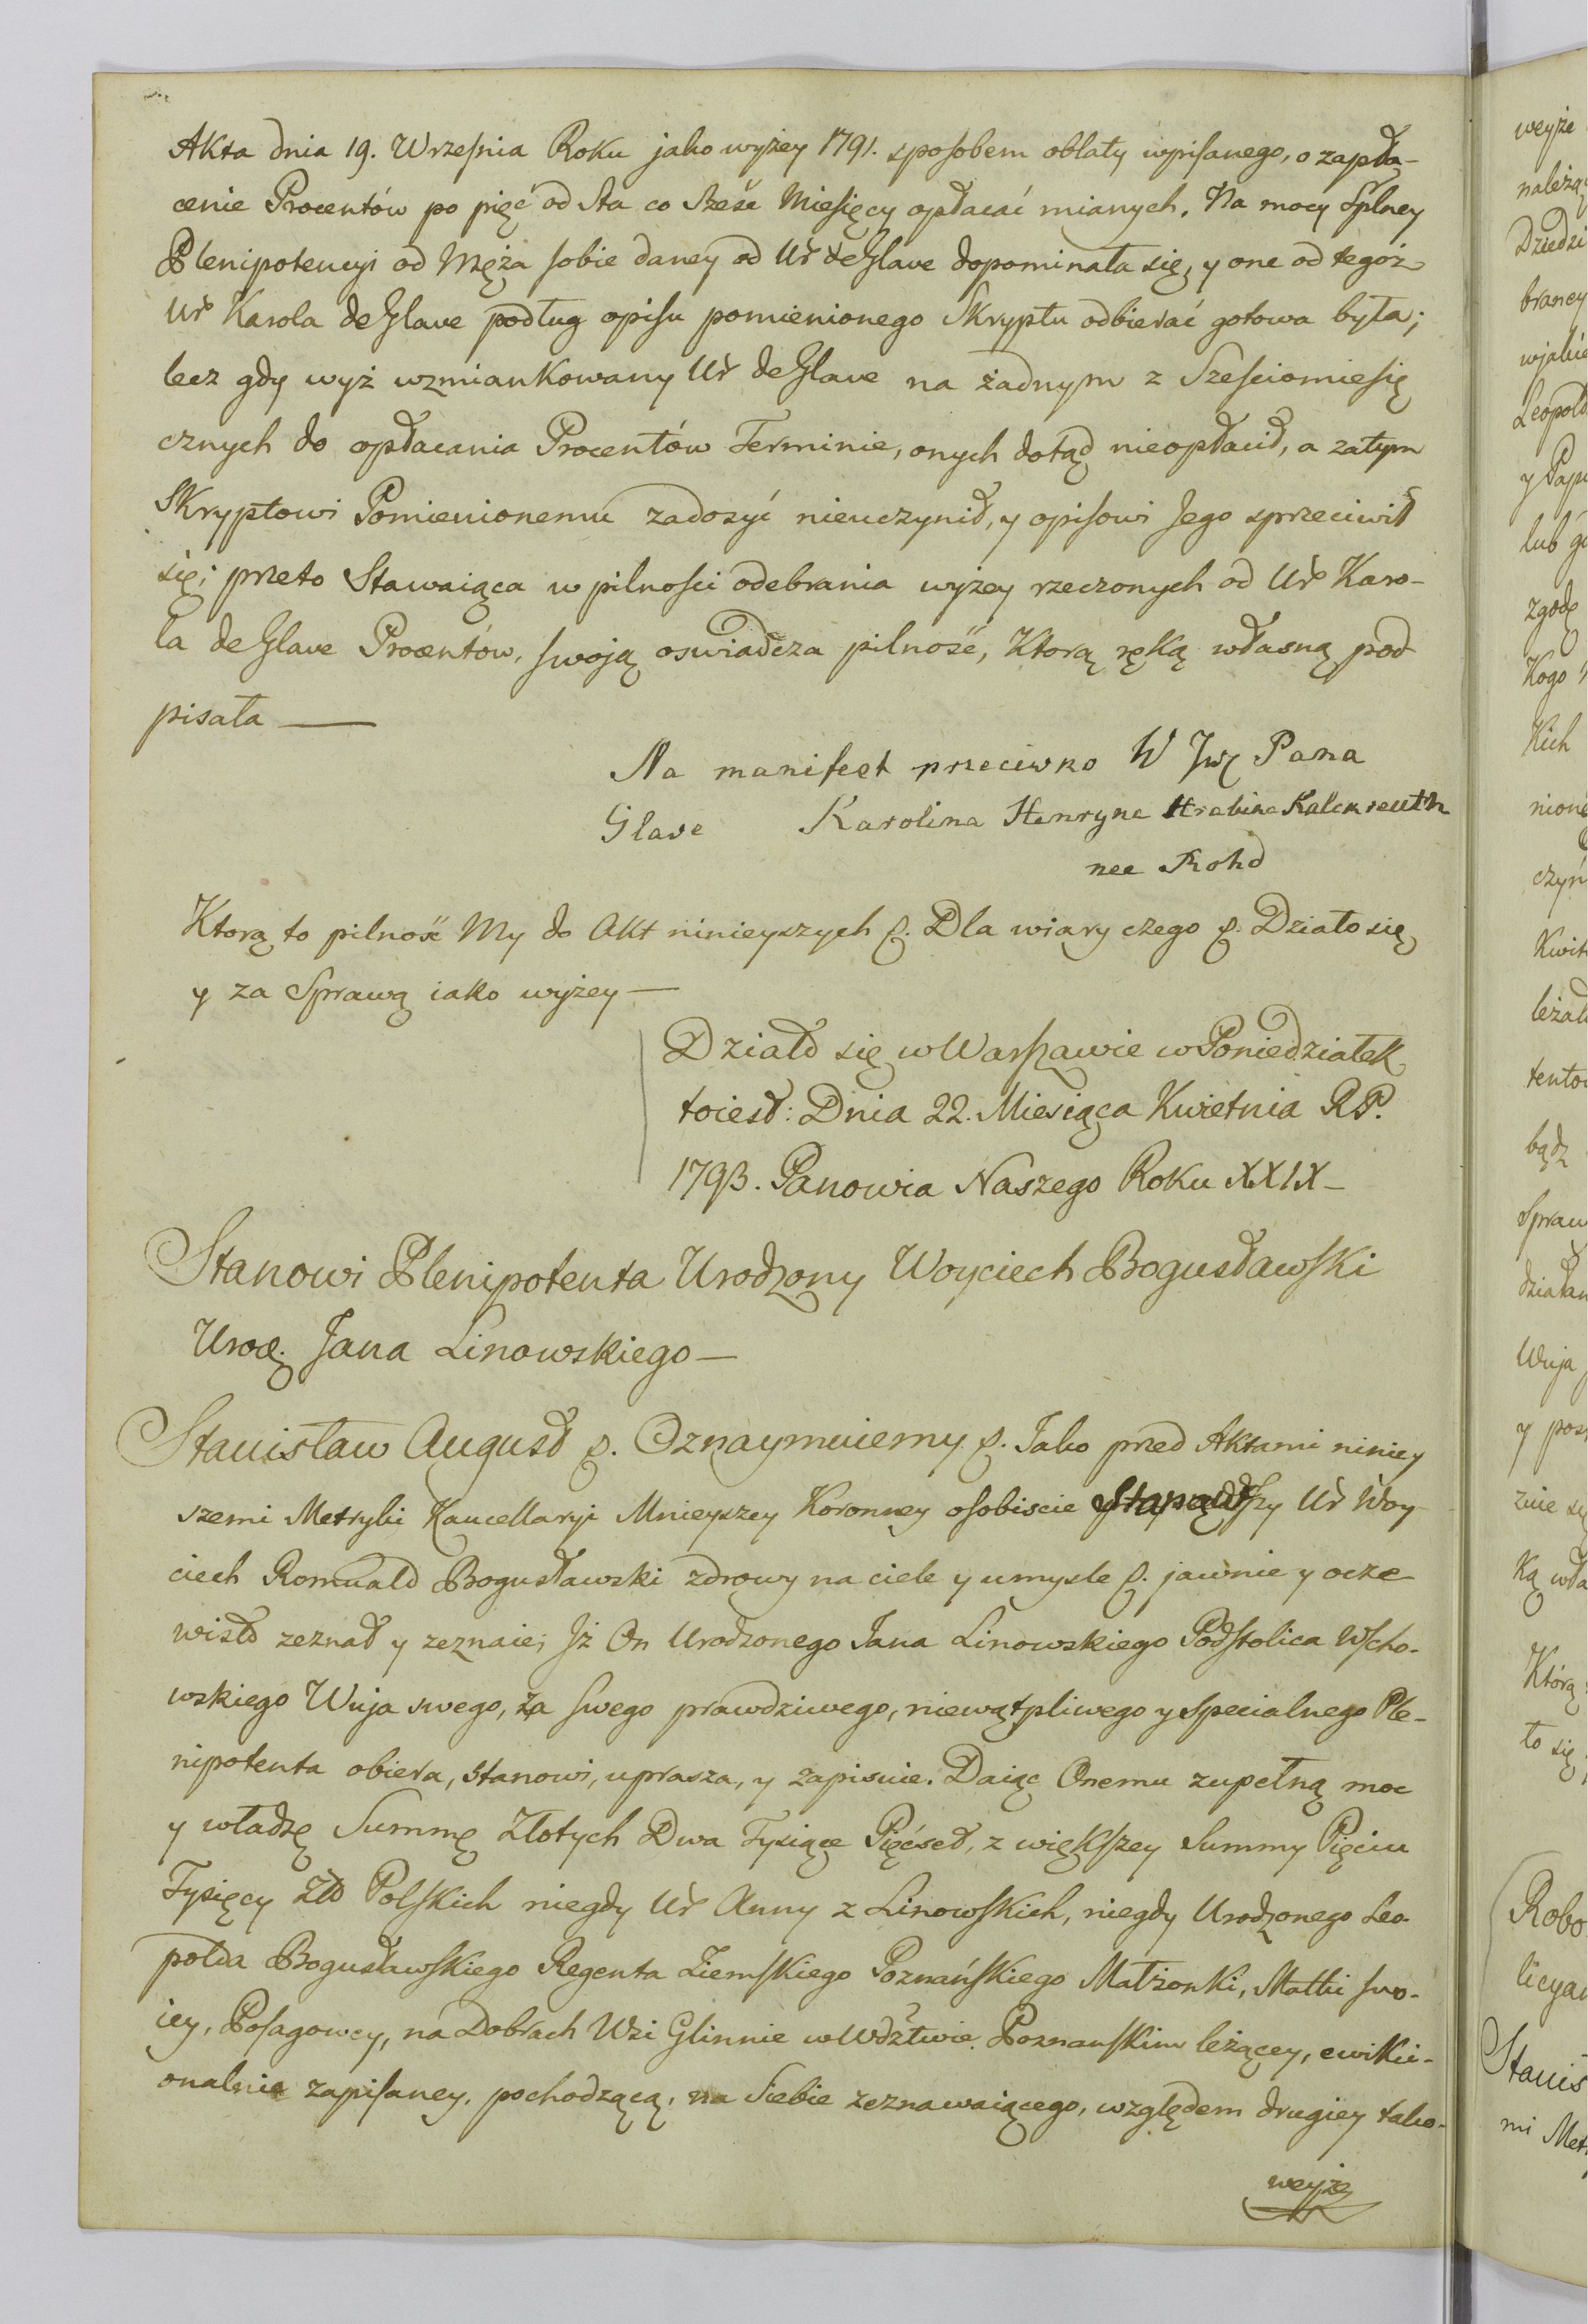 Akta dnia 19. Września Roku jako wyżey 1791. sposobem oblaty wpisanego, o zapła-
cenie Procentów po pięć od Sta co Sześć Miesięcy opłacać mianych. Na mocy Splney
Plenipotencyi od Męża sobie daney od Ur. de Glave dopominała się, y one od tegóż
Ur. Karola de Glave podług opisu pomienionego Skryptu odbierać gotowa była;
lecz gdy wyż wzmiankowany Ur. de Glave na żadnym z Sześciomiesię
cznych do opłacania Procentów Terminie, onych dotąd nieopłacił, a zatym
Skryptowi Pomienionemu zadosyć nieuczynił, y opisowi Jego sprzeciwił
się; przeto Stawaiąca w pilności odebrania wyżey rzeczonych od Ur. Karo-
la de Glave Procentów, swoją oswiadcza pilność, Ktorą ręką własną pod
pisała —
Na manifest przeciwko W Jwz Pana
Glave Karolina Henryne Hrabina Kalckreuth
nee Rohd
Ktorą to pilność My do Akt ninieyszych p. Dla wiary czego p. Działo się
y za Sprawą iako wyżey —
Działo się w Warszawie w Poniedziałek
toiest: Dnia 22. Miesiąca Kwietnia RP.
1793. Panowia Naszego Roku XXIX —
Stanowi Plenipotenta Urodzony Woyciech Bogusławski
Urod. Jana Linowskiego —
Stanisław August p. Oznaymuiemy p. Jako przed Aktami niniey
szemi Metryki Kancellaryi Mnieyszey Koronney osobiscie stapąwszy Ur. Woy-
ciech Romuald Bogusławski zdrowy na ciele y umysle p. jawnie y ocze
wisto zeznał y zeznaie; Iż On Urodzonego Jana Linowskiego Podstolica Wscho-
wskiego Wuja swego, za swego prawdziwego, niewątpliwego y specialnego Ple-
nipotenta obiera, stanowi, uprasza, y zapisuie. Daiąc Onemu zupełną moc
y władzę Summę Złotych Dwa Tysiące Pięćset, z większey Summy Pięciu
Tysięcy Zło Polskich niegdy Ur. Anny z Linowskich, niegdy Urodzonego Leo-
polda Bogusławskiego Regenta Ziemskiego Poznańskiego Małżonki, Matki swo-
iey, Posagowey, na Dobrach Wsi Glinnie w Wdztwie Poznanskim leżącey, ewikci-
onalnie zapisaney, pochodzącą, na Siebie zeznawaiącego, względem drugiey tako-
weyże